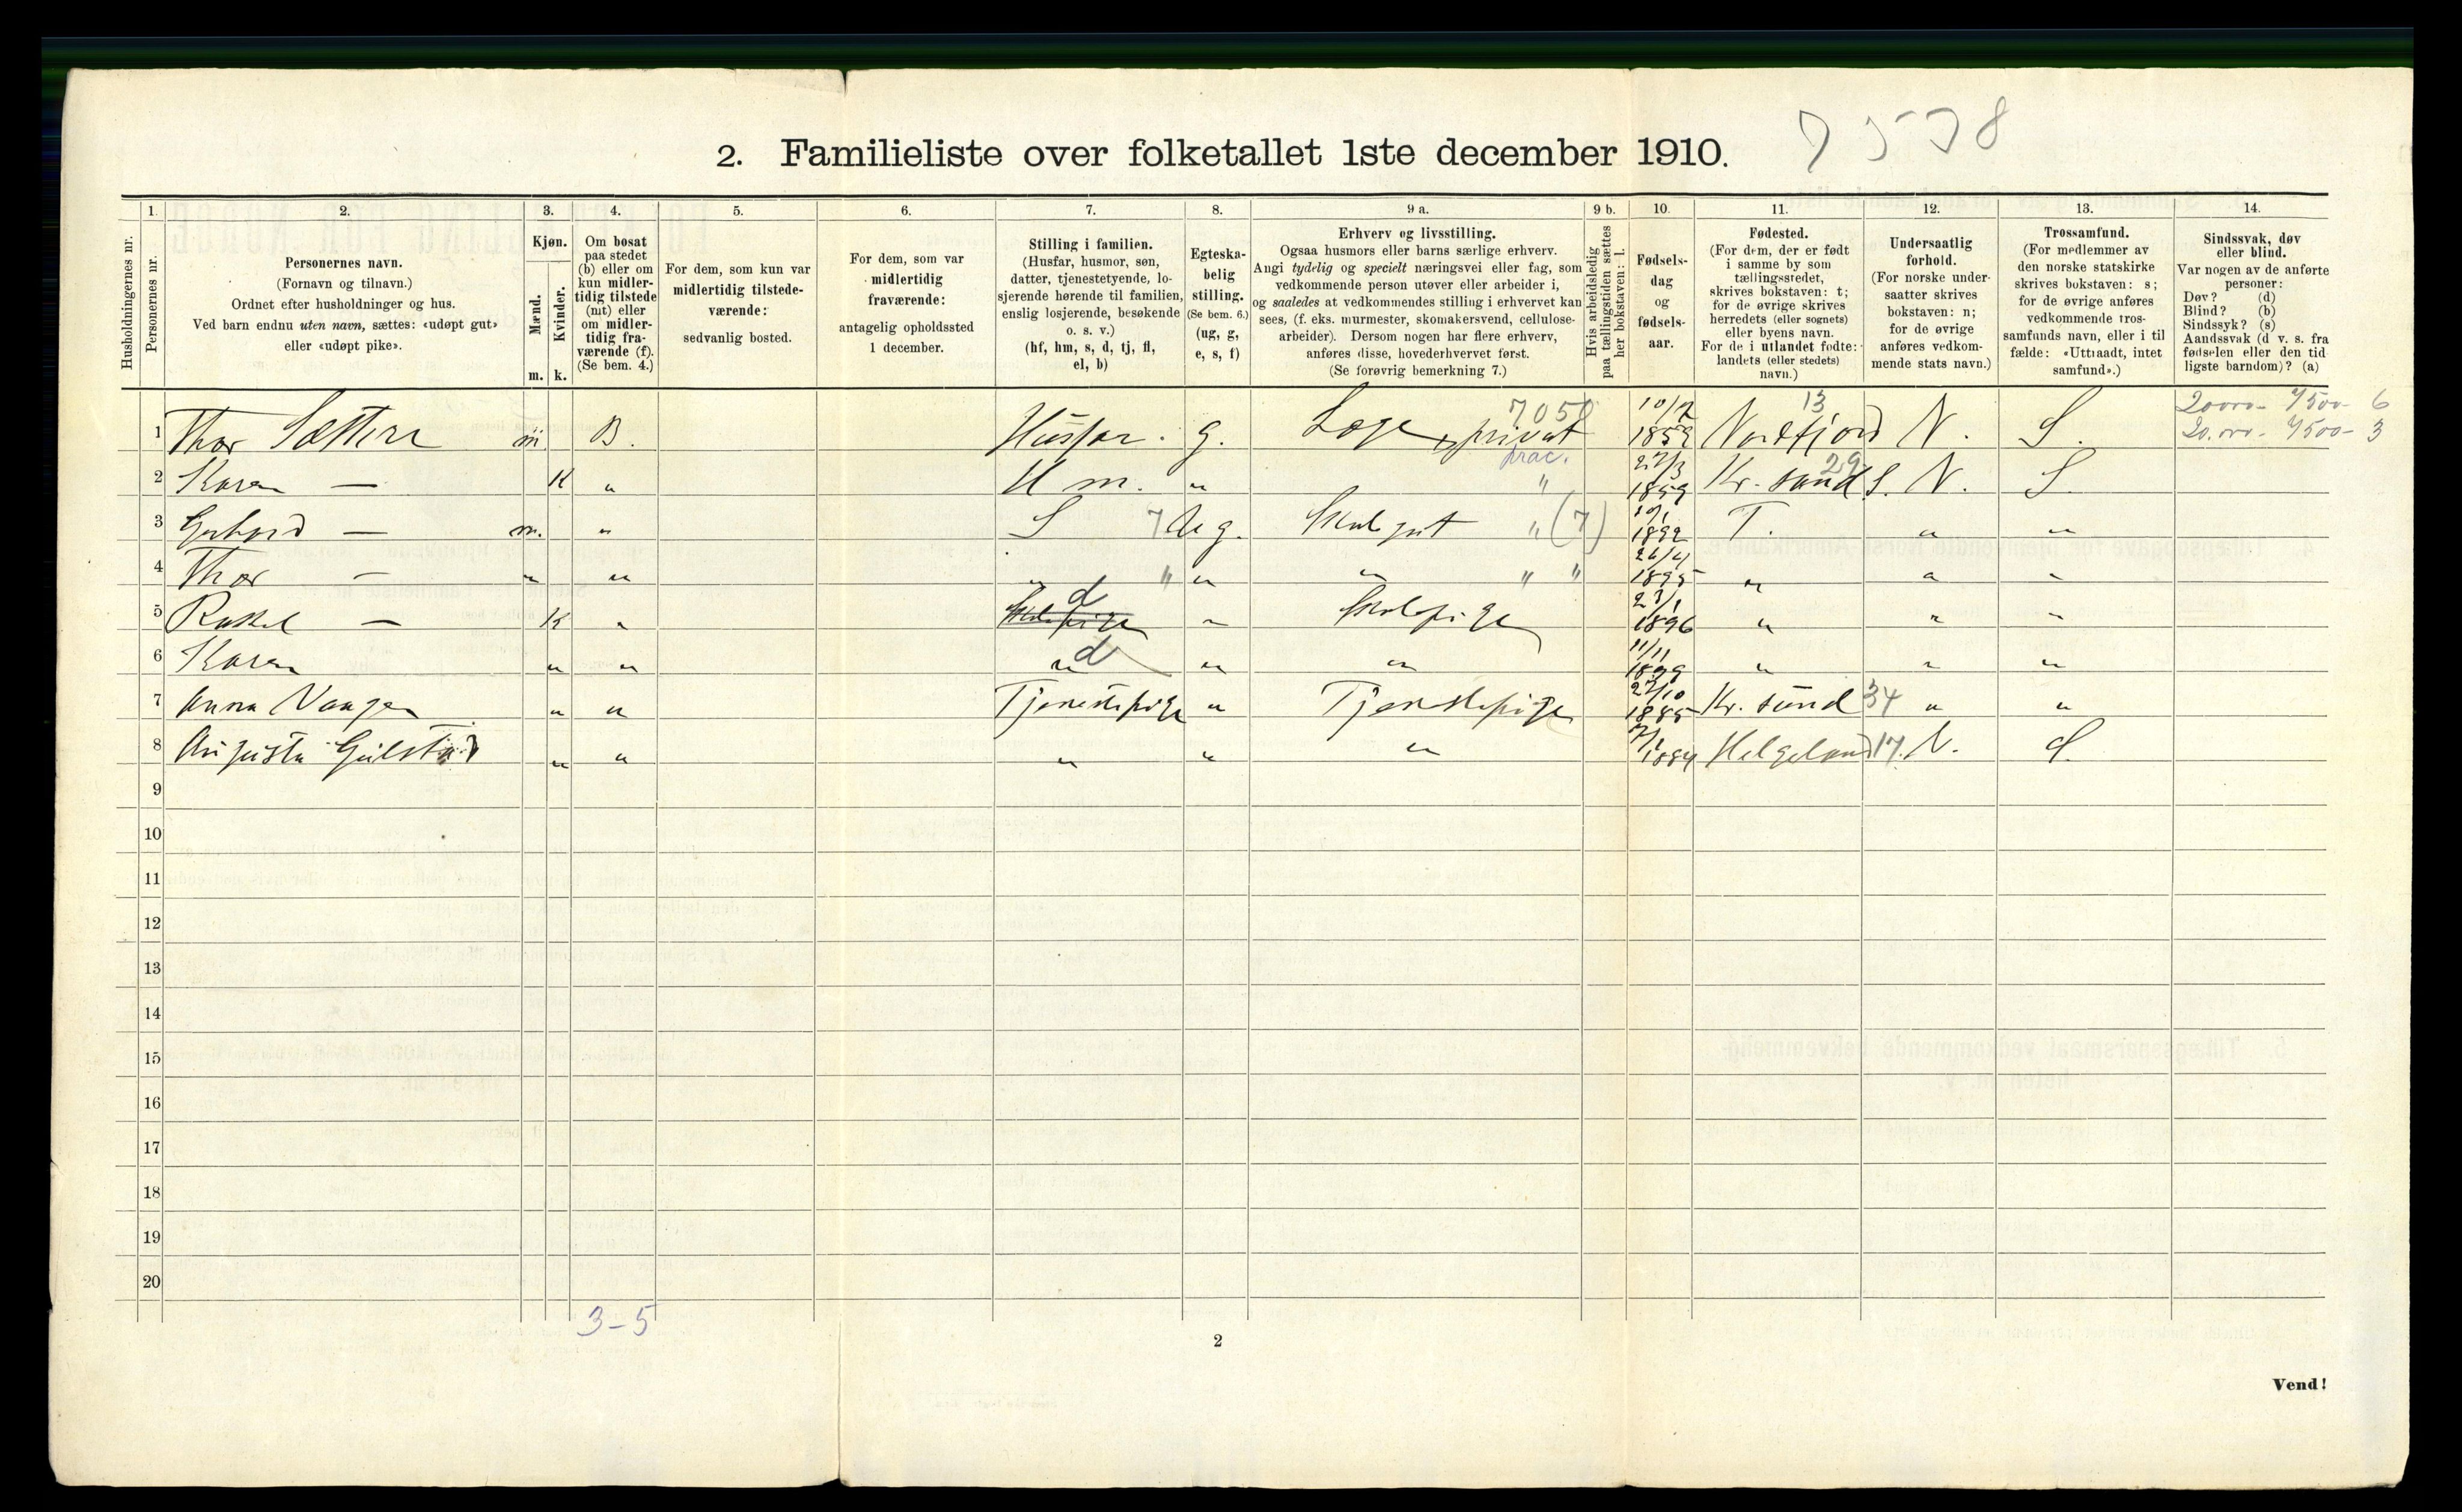 7538
2. Familieliste over folketallet 1ste december 1910.
Husholdningernes nr.
1.
Personernes nr.
2.
Personernes navn.
(Fornavn og tilnavn.)
Ordnet efter husholdninger og hus.
Ved barn endnu uten navn, sættes: «udøpt gut»
eller «udøpt pike».
3.
Kjøn.
Mænd.
Kvinder.
m. k.
4.
Om bosat
paa stedet
(b) eller om
kun midler-
tidig tilstede
(mt) eller
om midler-
tidig fra-
værende (f).
(Se bem. 4.)
5.
For dem, som kun var
midlertidig tilstede-
værende:
sedvanlig bosted.
6.
For dem, som var
midlertidig
fraværende:
antagelig opholdssted
1 december.
7.
Stilling i familien.
(Husfar, husmor, søn,
datter, tjenestetyende, lo-
sjerende hørende til familien,
enslig losjerende, besøkende
o. s. v.)
(hf, hm, s, d, tj, fl,
el, b)
8.
Egteska-
belig
stilling.
(Se bem. 6.)
(ug, g,
e, s, f)
9 a.
Erhverv og livsstilling.
Ogsaa husmors eller barns særlige erhverv.
Angi tydelig og specielt næringsvei eller fag, som
vedkommende person utøver eller arbeider i,
og saaledes at vedkommendes stilling i erhvervet kan
sees, (f. eks. murmester, skomakersvend, cellulose-
arbeider). Dersom nogen har flere erhverv,
anføres disse, hovederhvervet først.
(Se forøvrig bemerkning 7.)
9 b.
Hvis arbeidsledig
paa tællingstiden sættes
her bokstaven: l.
10.
Fødsels-
dag
og
fødsels-
aar.
11.
Fødested.
(For dem, der er født
i samme by som
tællingsstedet,
skrives bokstaven: t;
for de øvrige skrives
herredets (eller sognets)
eller byens navn.
For de i utlandet fødte:
landets (eller stedets)
navn.)
12.
Undersaatlig
forhold.
(For norske under-
saatter skrives
bokstaven: n;
for de øvrige
anføres vedkom-
mende stats navn.)
13.
Trossamfund.
(For medlemmer av
den norske statskirke
skrives bokstaven: s;
for de øvrige anføres
vedkommende tros-
samfunds navn, eller i til
fælde: «Uttraadt, intet
samfund».)
14.
Sindssvak, døv
eller blind.
Var nogen av de anførte
personer:
Døv? (d)
Blind? (b)
Sindssyk? (s)
Aandssvak (d v. s. fra
fødselen eller den tid
ligste barndom)? (a)
7050 10/7 13 20000- 7500- 6
1 Thor Sættre m. B. Husfar. g. Læge, privat 1859 Nordfjord N. S. 20.000- 7500- 3
prac. 27/3 29
2 Karen — K " H m. " " 1859 Kr. sund S. N. S.
3 Gerhard — m. " S 7 U g. Skolegut " (7) 1892 T. " "
26/4
4 Thor — " " " " " " " " 1895 " " "
d 23/1
5 Rakel — K " Skolepige " Skolepige 1896 " " "
d 11/11
6 Karen " " " " " 1899 " " "
27/10
7 Anna Vaagen " " Tjenestepige " Tjenestepige 1885 Kr. sund 34 " "
8 Augusta Gulstad " " " " " 1884 Helgeland 17. N. S.
9
10
11
12
13
14
15
16
17
18
19
20
3-5
2
Vend!